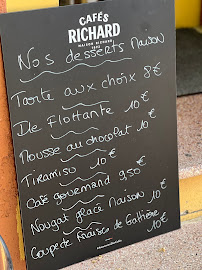 CAFÉS
RICHARD
MAISON RICHARD
Nos desserts Maison
Tarte aux choix 8€
Île Flottante 10€
Mousse au chocolat 10€
Tiramisu 10€
Café gourmand 9,50€
Nougat glacé maison 10€
Coupe de Fraises de 10€